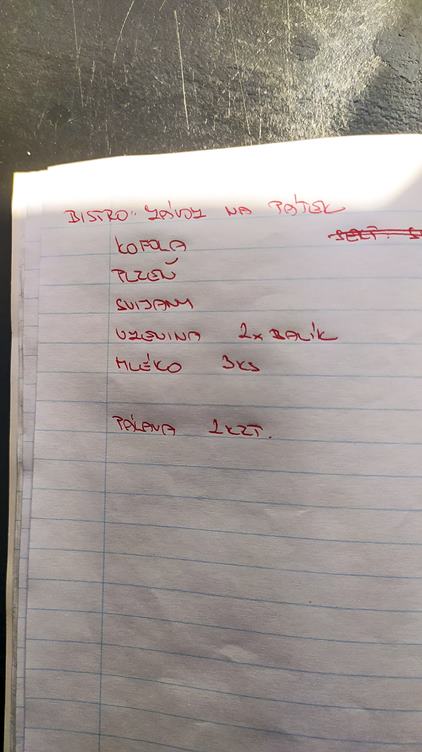 BISTRO: ZÁVOZ NA PÁTEK
KOFOLA
PLZEŇ
SVIJANY
UZENINA 2x BALÍK
MLÉKO 3KS
PÁLAVA 1KZT.